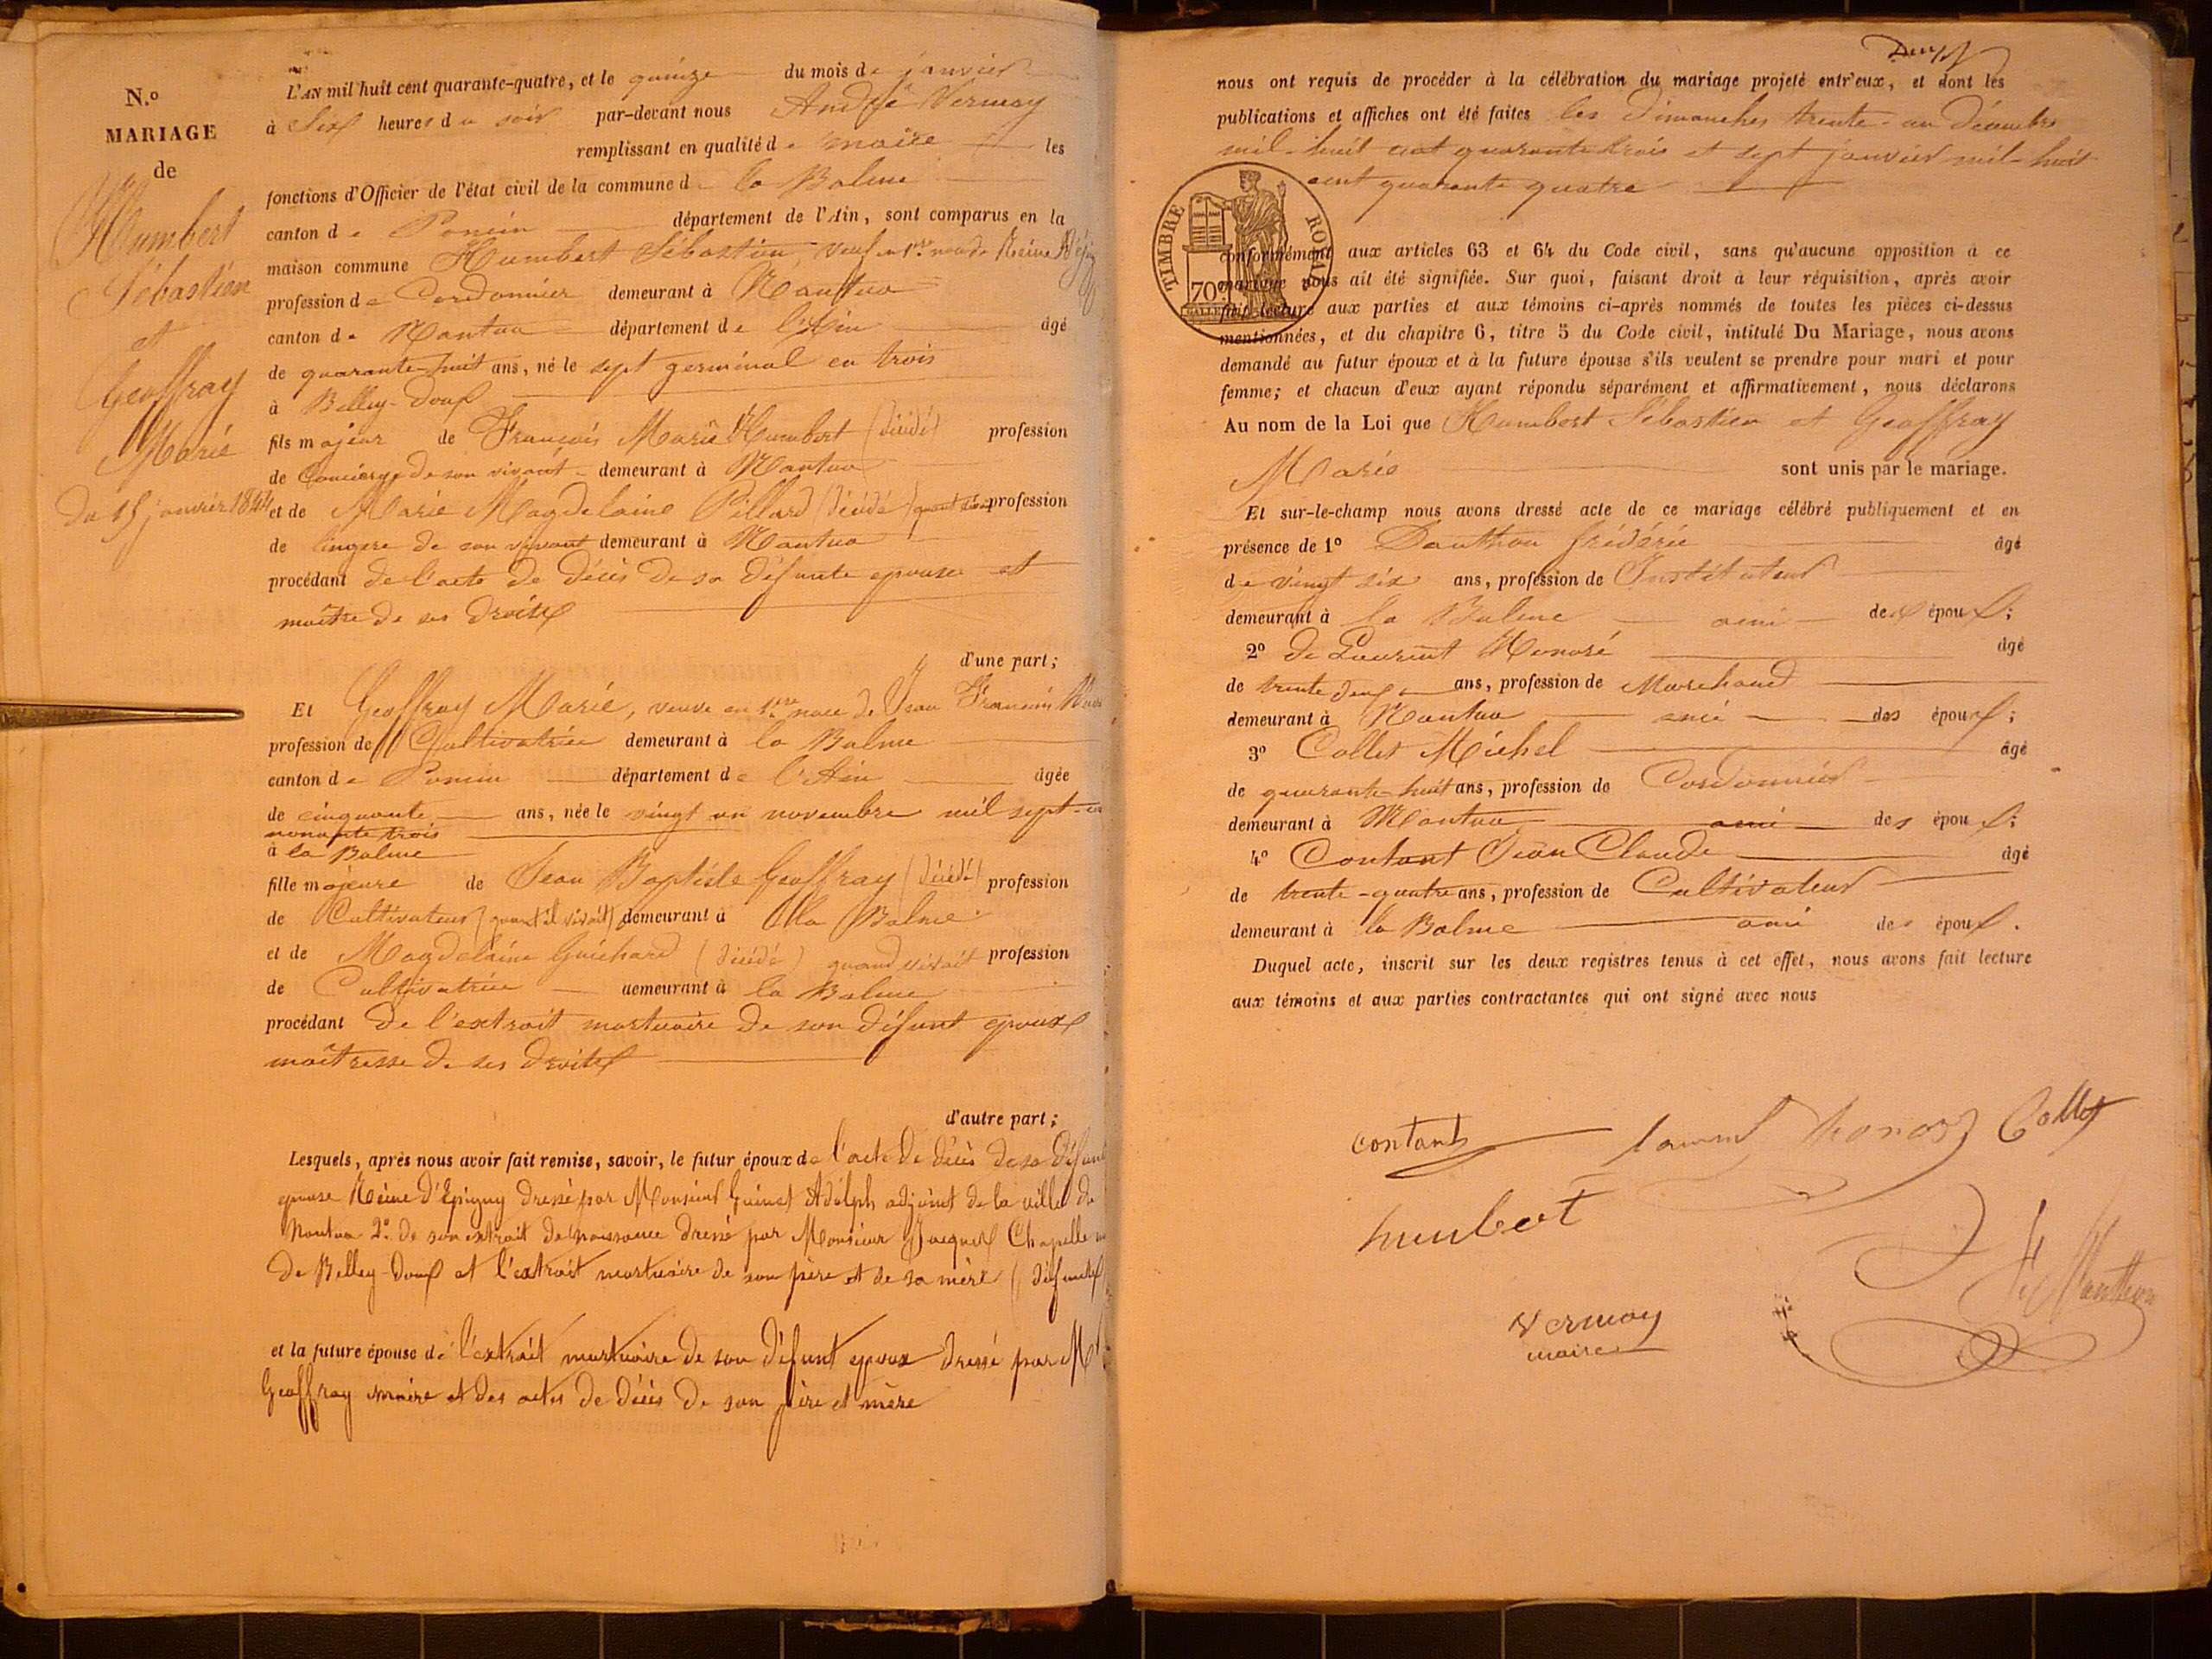 N.º
MARIAGE
de
Humbert
Sébastien
et
Geoffray
Marie
du 15 janvier 1844
L'AN mil huit cent quarante-quatre, et le quinze du mois de janvier
à Six heures du soir par-devant nous André Vermay
remplissant en qualité de maire les
fonctions d'Officier de l'état civil de la commune de la Balme
canton de Poncin département de l'Ain, sont comparus en la
maison commune Humbert Sébastien, veuf en 1re noce de Reine
profession de Cordonnier demeurant à Nantua
canton de Nantua département de l'Ain âgé
de quarante-huit ans, né le sept germinal en trois
à Belley-Doux
fils majeur de François Marie Humbert (décédé) profession
de Concierge de son vivant demeurant à Nantua
et de Marie Magdelaine Pillard (décédé) profession
de lingère de son vivant demeurant à Nantua
procédant de l'acte de décès de sa défunte epouse et
maître de ses droits
d'une part;
Et Geoffray Marie, veuve en 1re noce de Jean François
profession de Cultivatrice demeurant à la Balme
canton de Poncin département de l'Ain âgée
de cinquante ans, née le vingt un novembre mil sept-
nonante trois
à la Balme
fille majeure de Jean Baptiste Geoffray (décédé) profession
de Cultivateur (quand il vivait) demeurant à la Balme
et de Magdelaine Guichard (décédé) quand vivait profession
de Cultivatrice demeurant à la Balme
procédant de l'extrait mortuaire de son défunt epoux
maîtresse de ses droits
d'autre part;
Lesquels, après nous avoir fait remise, savoir, le futur époux de l'acte de décès de sa
epouse Reine d'Epigny dressé par Monsieur Guinet Adolph adjoint de la ville de
Nantua 2º de son extrait de naissance dressé par Monsieur Jacques Chapelle
de Belley-Doux et l'extrait mortuaire de son père et de sa mère (défunts
et la future épouse de l'extrait mortuaire de son défunt epoux dressé par Mr
Geoffray maire et des actes de décès de son père et mère
nous ont requis de procéder à la célébration du mariage projeté entr'eux, et dont les
publications et affiches ont été faites les dimanches trente-un décembre
mil-huit cent quarante trois et sept janvier mil-huit
cent quarante quatre
TIMBRE ROYAL
70
conformément aux articles 63 et 64 du Code civil, sans qu'aucune opposition à ce
mariage nous ait été signifiée. Sur quoi, faisant droit à leur réquisition, après avoir
fait lecture aux parties et aux témoins ci-après nommés de toutes les pièces ci-dessus
mentionnées, et du chapitre 6, titre 5 du Code civil, intitulé Du Mariage, nous avons
demandé au futur époux et à la future épouse s'ils veulent se prendre pour mari et pour
femme; et chacun d'eux ayant répondu séparément et affirmativement, nous déclarons
Au nom de la Loi que Humbert Sébastien et Geoffray
Marie sont unis par le mariage.
Et sur-le-champ nous avons dressé acte de ce mariage célébré publiquement et en
présence de 1º Dauthon frédéric âgé
de vingt six ans, profession de Instituteur
demeurant à la Balme ami des époux;
2º de Laurent Honoré âgé
de trente deux ans, profession de Marchand
demeurant à Nantua ami des époux;
3º Collet Michel âgé
de quarante-huit ans, profession de Cordonnier
demeurant à Nantua ami des époux;
4º Contant Jean Claude âgé
de trente-quatre ans, profession de Cultivateur
demeurant à la Balme ami des époux.
Duquel acte, inscrit sur les deux registres tenus à cet effet, nous avons fait lecture
aux témoins et aux parties contractantes qui ont signé avec nous
contant laurent honoré Collet
humbert
Vermay
maire